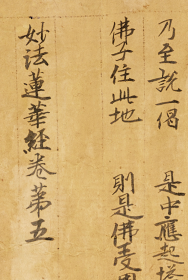 乃至說一偈　是中應起塔
佛子住此地　則是佛受用
妙法蓮華經卷第五